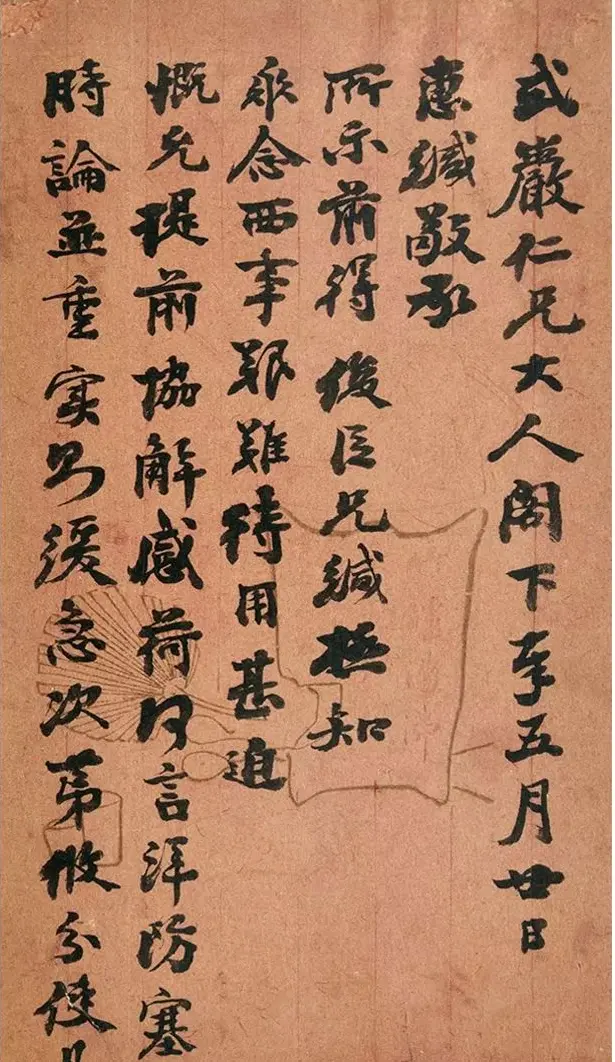 式巖仁兄大人閣下奉五月廿日
惠緘敬承
所示前得俊臣兄緘極知
眾念西事艱難待用甚迫
慨允提前協解感荷何言洋防塞
時論並重實則緩急次第攸分使